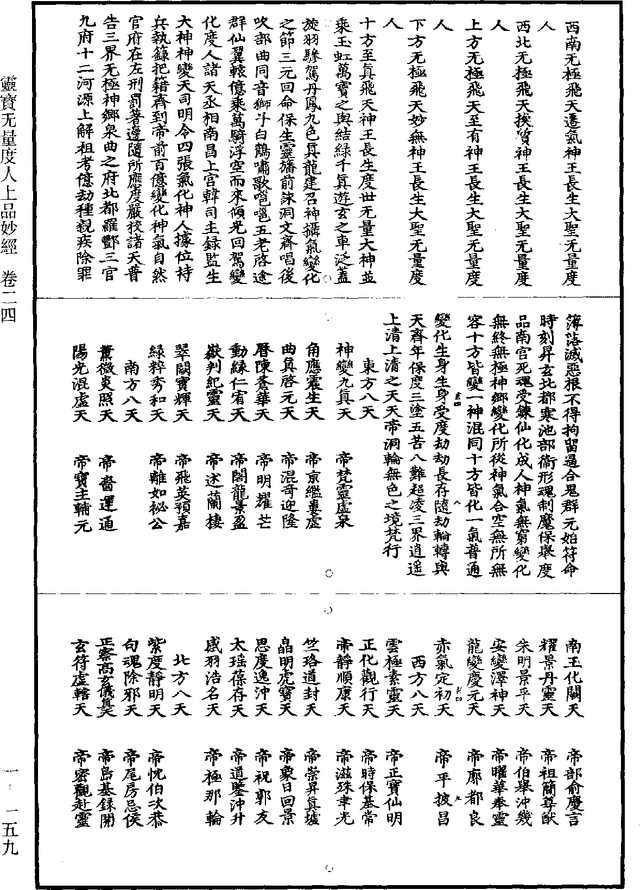 西南无極飛天遷氣神王長生大聖无量度
人
西北无極飛天挨質神王長生大聖无量度
人
上方无極飛天至有神王長生大聖无量度
人
下方无極飛天妙無神王長生大聖无量度
人
十方至真飛天神王長生度世无量大神並
乘玉虹萬寶之輿結綠千真遊玄之車泛蓋
旋羽驂駕丹鳳九色真龍建召神攝氣變化
之節三元回命保生靈旛前詠洞文齊唱後
吹部曲同音獅斗白鶴嘯歌邕邕五老啓途
群仙翼轅億乘萬騎浮空而來傾光回駕變
化度人諸天丞相南昌上宮韓司主錄監生
大神神變天司明令四張氣化神人據位持
兵執籙把籍齊到帝前百億變化神氣自然
官府在左刑罰著邊隨所應度嚴校諸天普
告三界无極神鄉泉曲之府北都羅酆三官
九府十二河源上解祖考億劫種親疾除罪
簿落滅惡根不得拘留逼合鬼群元始符命
時刻昇玄北都寒池部衛形魂制魔保舉度
品南宮死魂受鍊仙化成人神氣無窮變化
無終無極神鄉變化所從神氣合空無所無
容十方皆變一神混同十方皆化一氣普通
變化生身生身受度劫劫長存隨劫輪轉與
天齊年保度三塗五苦八難超凌三界逍遥
上清上清之天天帝洞輪無色之境梵行
東方八天
神變九真天 帝梵靈虛泉
角應震生天 帝京繼婁虛
曲真啓元天 帝混哥迎隆
曆陳養華天 帝明耀芒
動緣仁宥天 帝閣龍景盈
嶽判紀靈天 帝述蘭棲
翠閟寶輝天 帝飛英頴嘉
綠粹秀和天 帝離如袐公
南方八天
薰微炎照天 帝番運通
陽光混虛天 帝寶主輔元
南王化關天 帝部俞慶言
耀景丹靈天 帝祖簡尊猷
朱明景平天 帝伯舉沖幾
安變澤神天 帝曜華奉靈
龍變慶元天 帝廓都良
赤氣定初天 帝平披昌
西方八天
雲極素靈天 帝正寶仙明
正化觀行天 帝時保基常
帝靜順康天 帝滋殊聿光
竺珞道封天 帝崇昇真墟
晶明虎寶天 帝象日回景
思度逸沖天 帝祝郭友
太瑶葆存天 帝道鑒沖升
感羽浩名天 帝極那輪
北方八天
紫度靜明天 帝忱伯次恭
句魂除邪天 帝尾房忌侯
正察高玄儀真天 帝島基録開
玄符虛轄天 帝密觀赴靈
靈寶无量度人上品妙經 卷二四
一 一五九